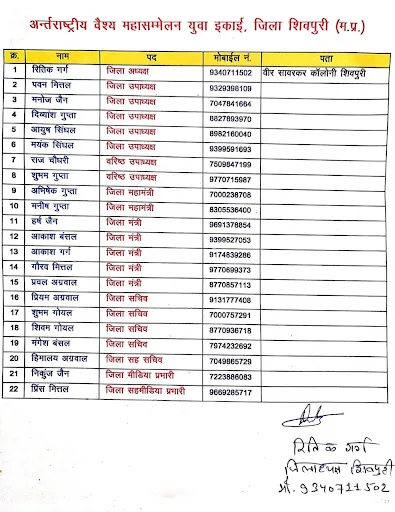 अर्न्तराष्ट्रीय वैश्य महासम्मेलन युवा इकाई, जिला शिवपुरी (म.प्र.)
क्र. नाम पद मोबाईल नं. पता
1 रितिक गर्ग जिला अध्यक्ष 9340711502 वीर सावरकर कॉलोनी शिवपुरी
2 पवन मित्तल जिला उपाध्यक्ष 9329398109
3 मनोज जैन जिला उपाध्यक्ष 7047841664
4 दिव्यांश गुप्ता जिला उपाध्यक्ष 8827893970
5 आयुष सिंघल जिला उपाध्यक्ष 8982160040
6 मयंक सिंघल जिला उपाध्यक्ष 9399591693
7 राज चौधरी वरिष्ठ उपाध्यक्ष 7509847199
8 शुभम गुप्ता वरिष्ठ उपाध्यक्ष 9770715987
9 अभिषेक गुप्ता जिला महामंत्री 7000238708
10 मनीष गुप्ता जिला महामंत्री 8305536400
11 हर्ष जैन जिला मंत्री 9691378854
12 आकाश बंसल जिला मंत्री 9399527053
13 आकाश गर्ग जिला मंत्री 9174839286
14 गौरव मित्तल जिला मंत्री 9770699373
15 प्रवल अग्रवाल जिला मंत्री 8770857113
16 प्रियम अग्रवाल जिला सचिव 9131777408
17 शुभम गोयल जिला सचिव 7000757291
18 शिवम गोयल जिला सचिव 8770936718
19 मंगेश बंसल जिला सचिव 7974232692
20 हिमालय अग्रवाल जिला सह सचिव 7049865729
21 निकुंज जैन जिला मीडिया प्रभारी 7223886083
22 प्रिंस मित्तल जिला सहमीडिया प्रभारी 9669285717
रितिक गर्ग
जिलाध्यक्ष शिवपुरी
मो. 9340711502